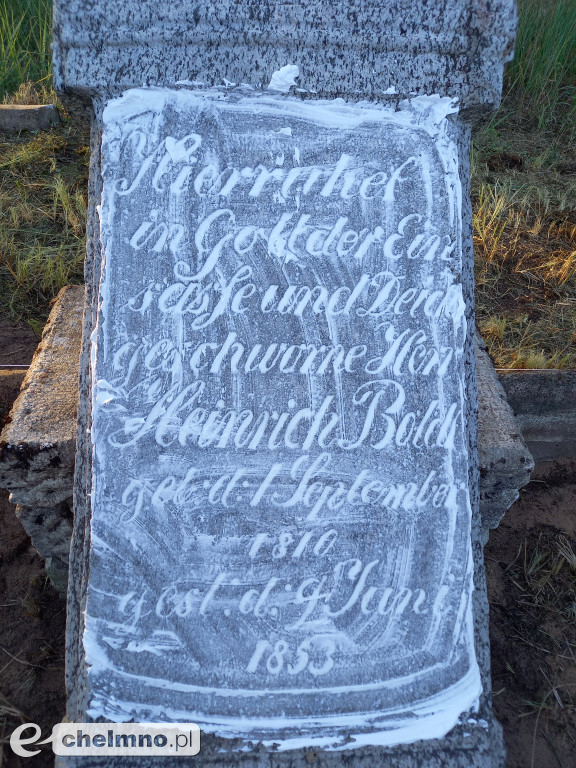 Hier ruhet
in Gott der Ein
sasse und Deich
geschworne Herr
Heinrich Boldt
geb: d: 1 September
1810
gest: d: 9 Juni
1853
e-chelmno.pl